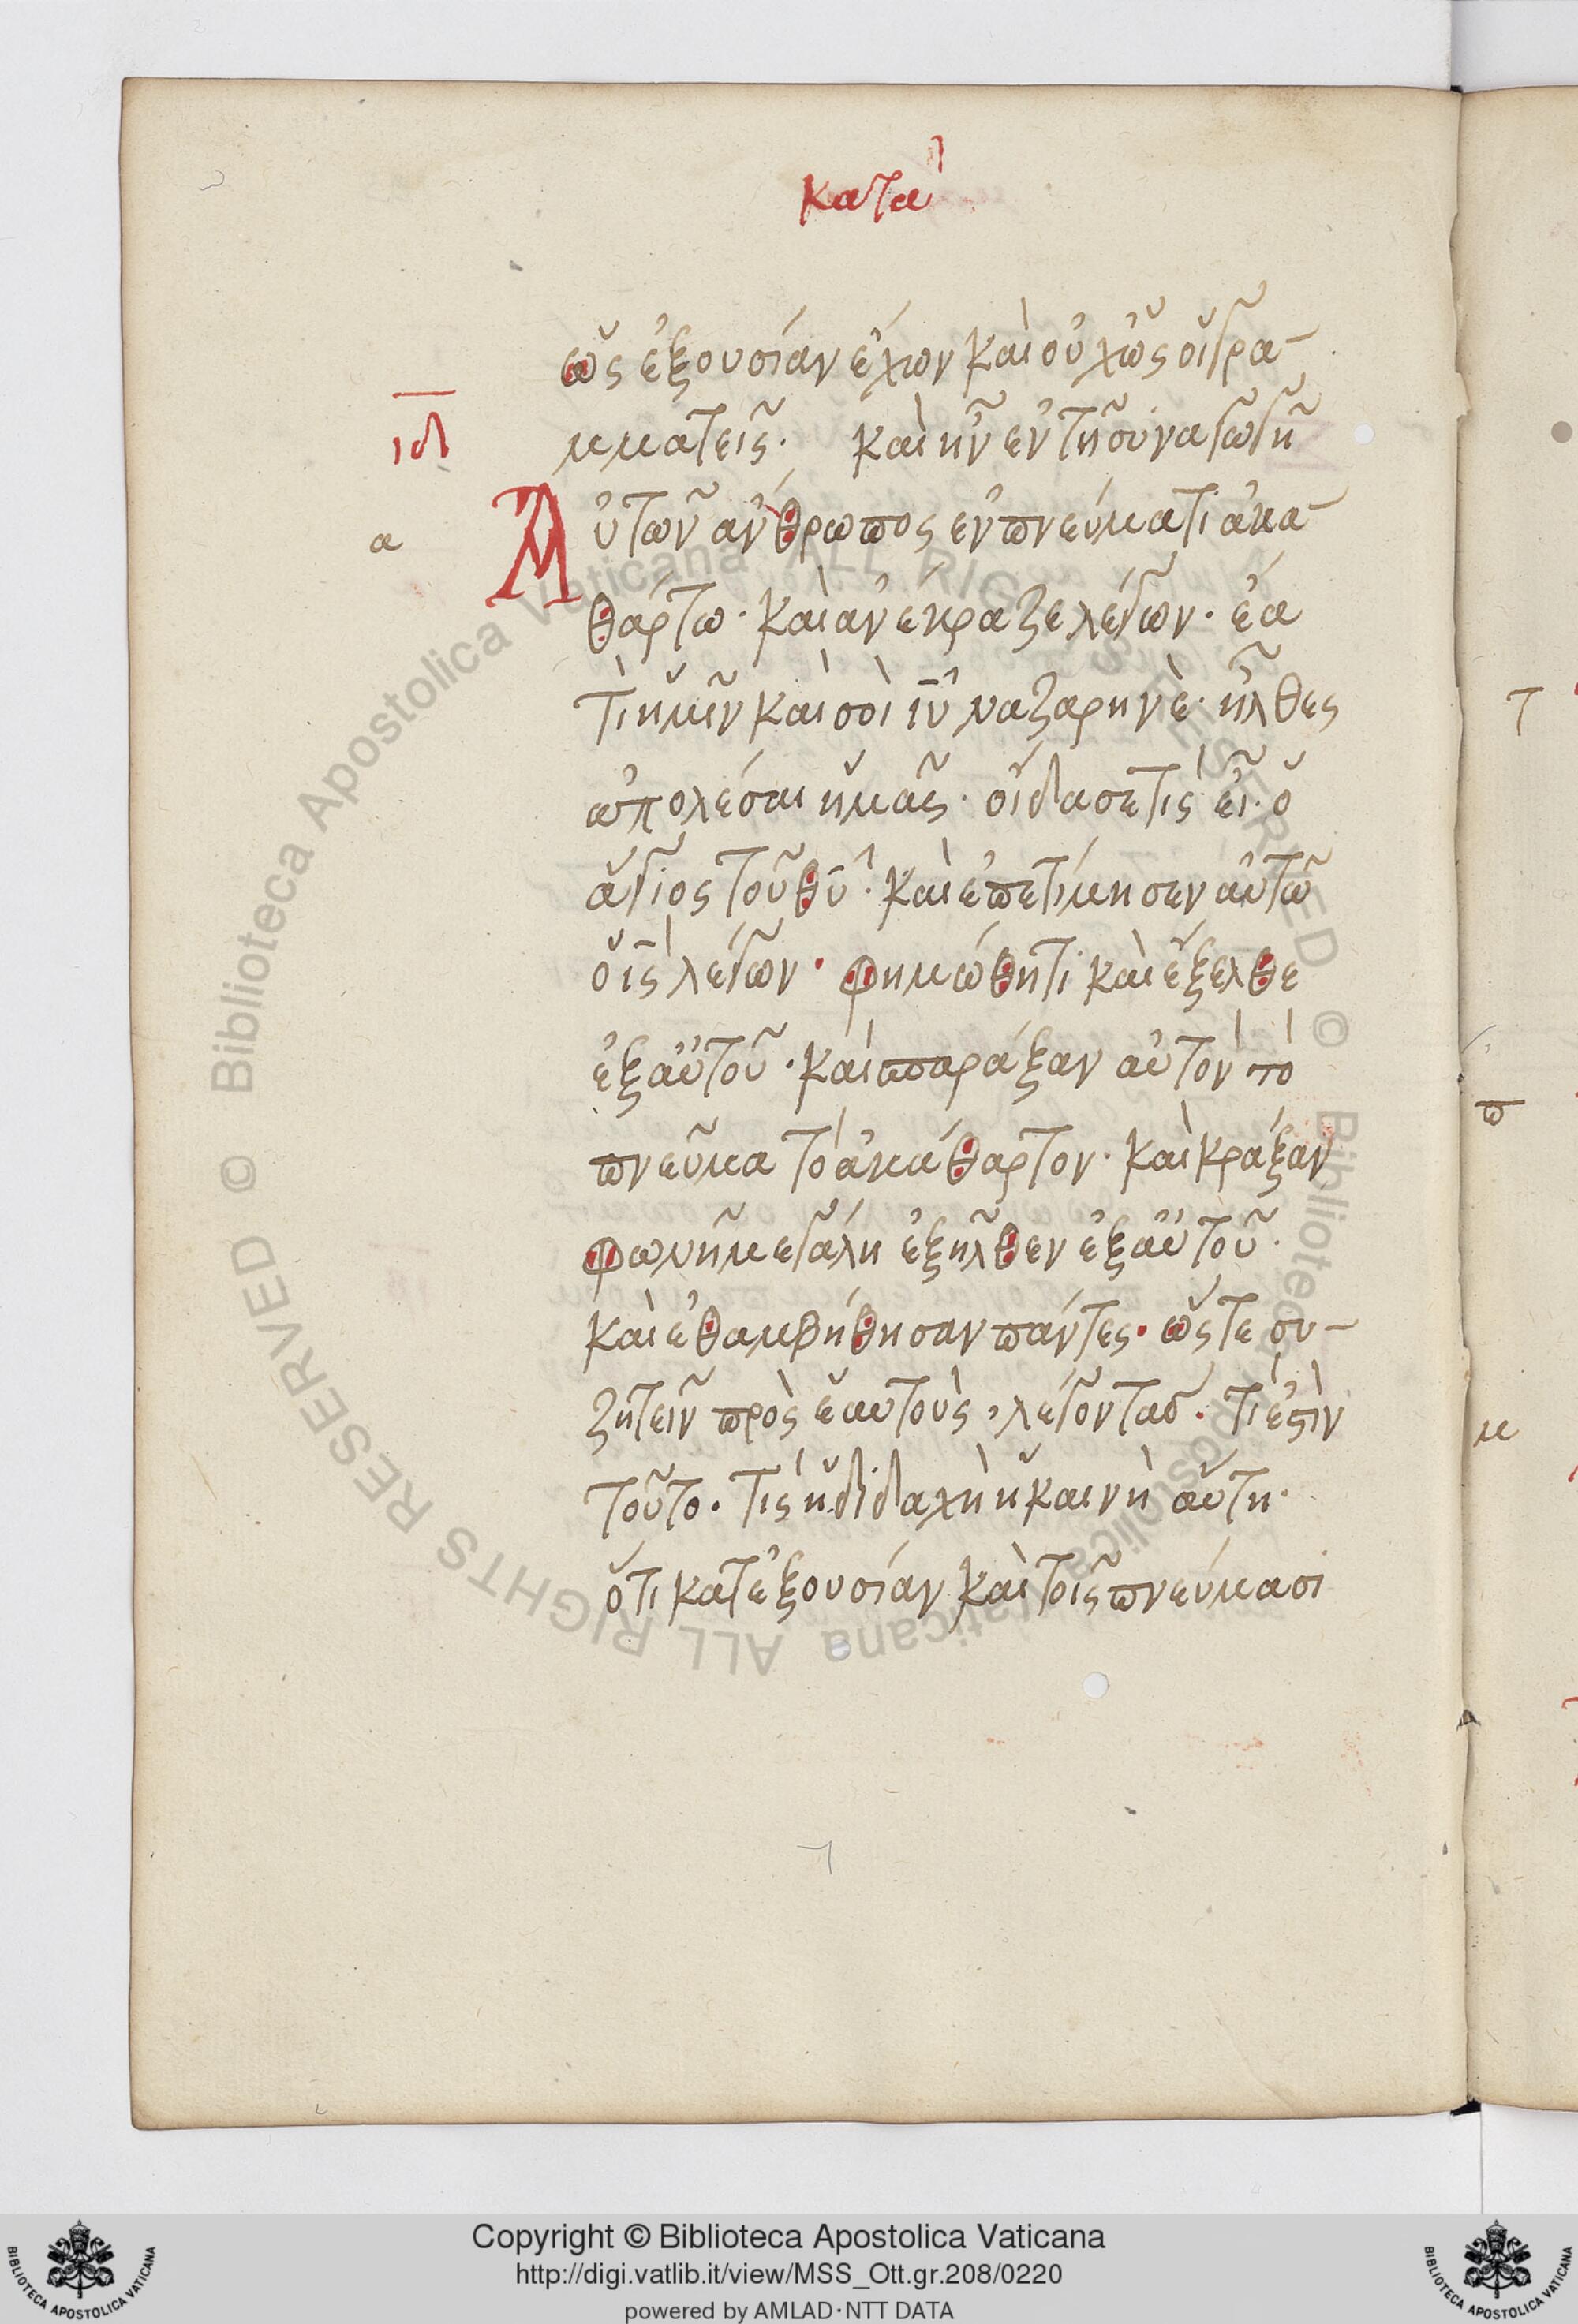 κατὰ
ὡς ἐξουσίαν ἔχων καὶ οὐχ ὡς οἱ γρα-
ιδ
μματεῖς· καὶ ἦν ἐν τῆ συναγωγῆ
α
Αὐτῶν ἄνθρωπος ἐν πνεύματι ἀκα-
θάρτω· καὶ ἀνέκραξε λέγων· ἔα
τὶ ἡμῖν καὶ σοὶ ιῦ ναζαρηνὲ· ἦλθες
ἀπολέσαι ἡμᾶς· οἶδα σε τίς εἶ· ὁ
ἅγιος τοῦ θῦ· καὶ ἐπετίμησεν αὐτῶ
ὁ ις λέγων· φημώθητι καὶ ἔξελθε
ἐξ αὐτοῦ· καὶ σπαράξαν αὐτὸν τὸ
πνεῦμα τὸ ἀκάθαρτον· καὶ κράξαν
φωνῆ μεγάλη ἐξῆλθεν ἐξ αὐτοῦ·
καὶ ἐθαμβήθησαν πάντες· ὥστε συ-
ζητεῖν πρὸς ἑαυτοὺς, λέγοντας· τὶ ἐστὶν
τοῦτο· τίς ἡ διδαχὴ ἡ καινὴ αὕτη·
ὅτι κατ ἐξουσίαν καὶ τοῖς πνεύμασι
Copyright © Biblioteca Apostolica Vaticana
http://digi.vatlib.it/view/MSS_Ott.gr.208/0220
powered by AMLAD·NTT DATA